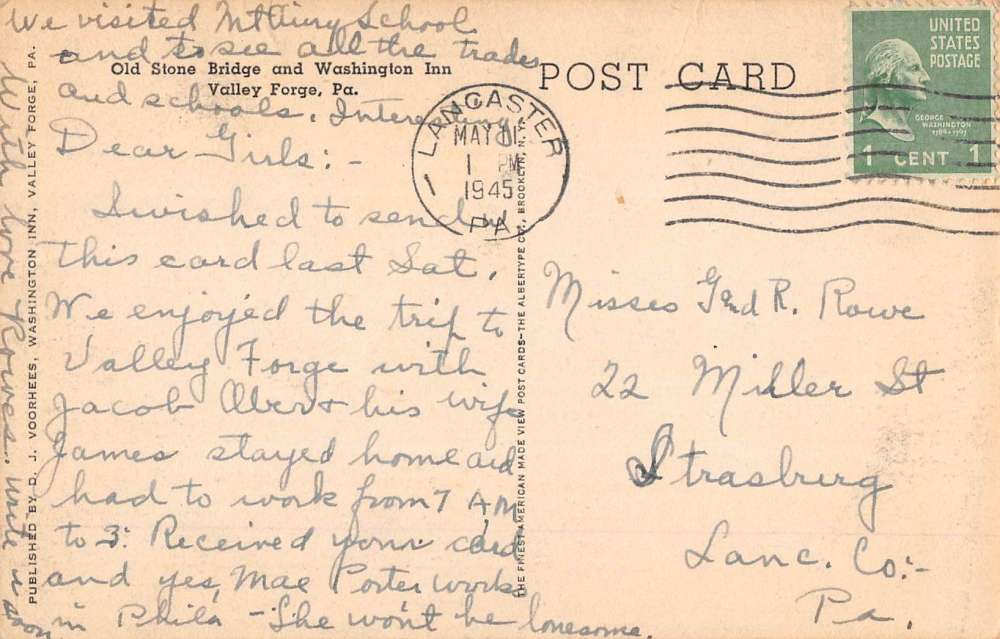 We visited School
and to see all the trades
Old Stone Bridge and Washington Inn
Valley Forge, Pa.
and schools. Interesting
POST CARD
UNITED
STATES
POSTAGE
GEORGE
WASHINGTON
1789-1797
1 CENT 1
LANCASTER
MAY 11
1 PM
1945
PA
Dear Girls:-
I wished to send
this card last Sat.
We enjoyed the trip to
Valley Forge with
Jacob & his wife
James stayed home and
had to work from 7 AM
to 3: Received your card
and yes, Mae Porter works
in Phila - She won't be lonesome.
With love write soon
PUBLISHED BY D. J. VOORHEES, WASHINGTON INN, VALLEY FORGE, PA.
THE FINEST AMERICAN MADE VIEW POST CARDS-THE ALBERTYPE CO., BROOKLYN, N.Y.
Misses G and R. Rowe
22 Miller St
Strasburg
Lanc. Co:-
Pa.